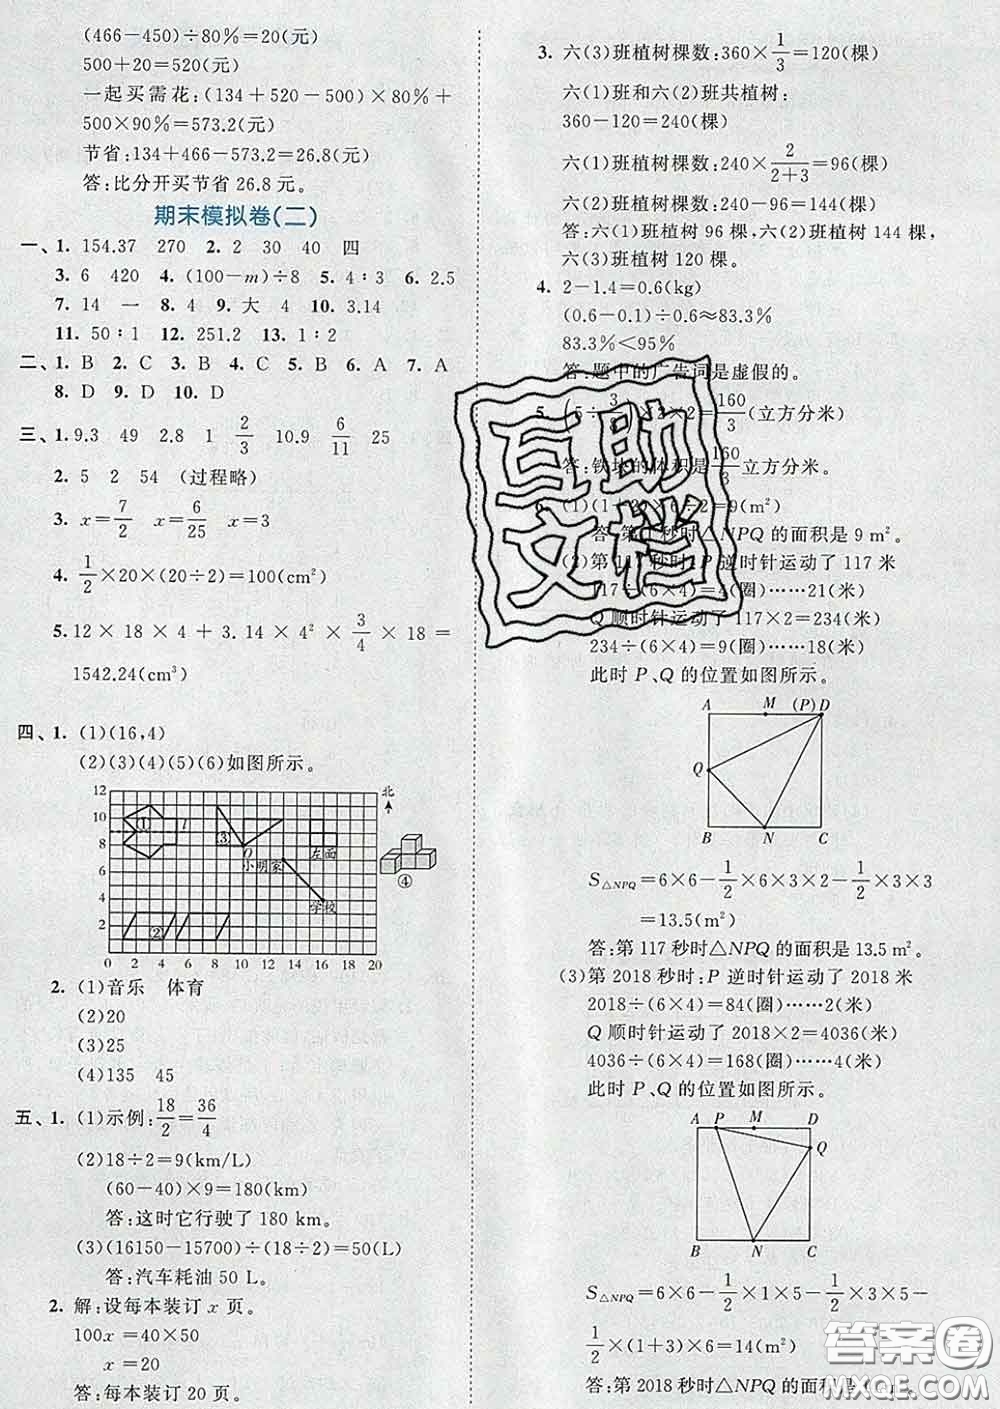 (466-450)÷80%=20(元)
500+20=520(元)
一起买需花:(134+520-500)×80%+
500×90%=573.2(元)
节省:134+466-573.2=26.8(元)
答:比分开买节省 26.8 元。
期末模拟卷(二)
一、1. 154.37 270 2. 2 30 40 四
3. 6 420 4. (100-m)÷8 5. 4∶3 6. 2.5
7. 14 一 8. 4 9. 大 4 10. 3.14
11. 50∶1 12. 251.2 13. 1∶2
二、1. B 2. C 3. B 4. C 5. B 6. A 7. A
8. D 9. D 10. D
三、1. 9.3 49 2.8 1 2/3 10.9 6/11 25
2. 5 2 54 (过程略)
3. x=7/2 x=6/25 x=3
4. 1/2×20×(20÷2)=100(cm²)
5. 12×18×4+3.14×4²×3/4×18=
1542.24(cm³)
四、1. (1)(16,4)
(2)(3)(4)(5)(6)如图所示。
12
10
8
6
4
2
0 2 4 6 8 10 12 14 16 18 20
① l ③ O 左面 北
小明家
学校
②
④
2. (1)音乐 体育
(2)20
(3)25
(4)135 45
五、1. (1)示例:18/2=36/4
(2)18÷2=9(km/L)
(60-40)×9=180(km)
答:这时它行驶了 180 km。
(3)(16150-15700)÷(18÷2)=50(L)
答:汽车耗油 50 L。
2. 解:设每本装订 x 页。
100x=40×50
x=20
答:每本装订 20 页。
3. 六(3)班植树棵数:360×1/3=120(棵)
六(1)班和六(2)班共植树:
360-120=240(棵)
六(1)班植树棵数:240×2/(2+3)=96(棵)
六(2)班植树棵数:240-96=144(棵)
答:六(1)班植树 96 棵,六(2)班植树 144 棵,
六(3)班植树 120 棵。
4. 2-1.4=0.6(kg)
(0.6-0.1)÷0.6≈83.3%
83.3%<95%
答:题中的广告词是虚假的。
×2×2=160/3(立方分米)
答:铁块的体积是160/3立方分米。
×6÷2=9(m²)
秒时△NPQ 的面积是 9 m²。
(2)第 117 秒时:P 逆时针运动了 117 米
117÷(6×4)=4(圈)……21(米)
Q 顺时针运动了 117×2=234(米)
234÷(6×4)=9(圈)……18(米)
此时 P、Q 的位置如图所示。
A M (P)D
Q
B N C
S△NPQ=6×6-1/2×6×3×2-1/2×3×3
=13.5(m²)
答:第 117 秒时△NPQ 的面积是 13.5 m²。
(3)第 2018 秒时:P 逆时针运动了 2018 米
2018÷(6×4)=84(圈)……2(米)
Q 顺时针运动了 2018×2=4036(米)
4036÷(6×4)=168(圈)……4(米)
此时 P、Q 的位置如图所示。
A P M D
Q
B N C
S△NPQ=6×6-1/2×1×5-1/2×3×5-
1/2×(1+3)×6=14(m²)
答:第 2018 秒时△NPQ 的面积是
互助
文档
答案圈
MXQE.COM